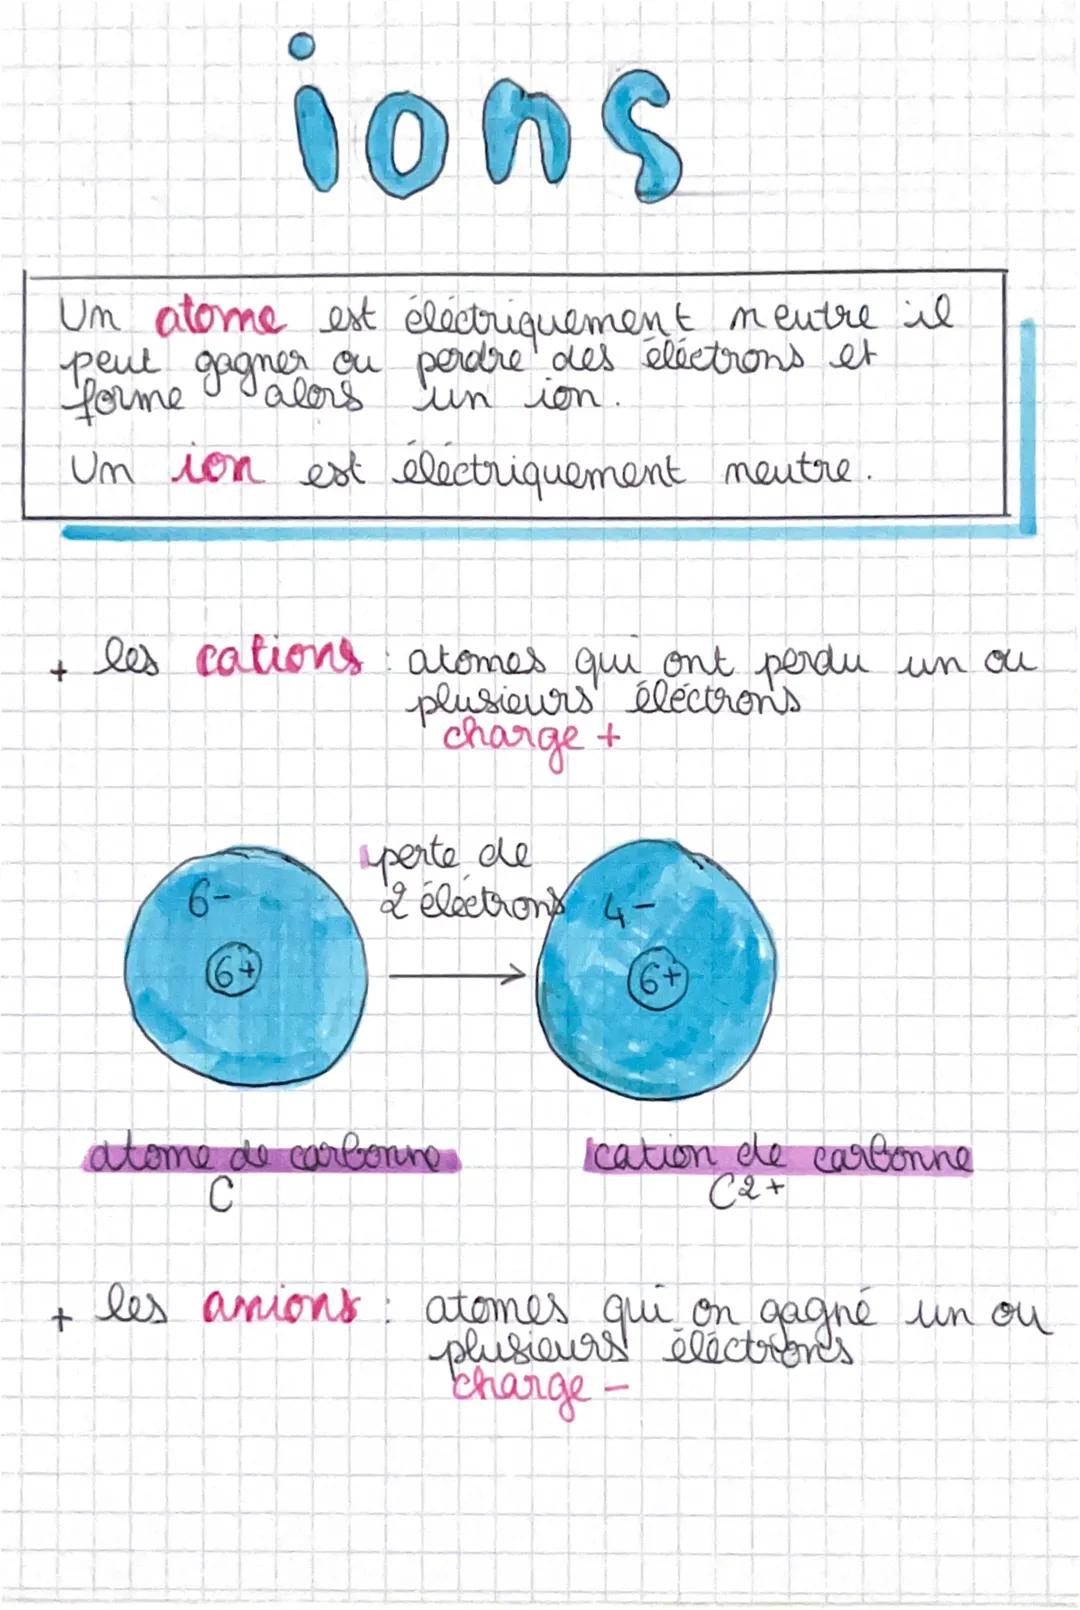 ions
Un atome est électriquement neutre il
peut gagner ou perdre des électrons et
forme alors un ion.
Un ion est électriquement neutre.
+ les cations : atomes qui ont perdu un ou
plusieurs électrons
charge +
perte de
2 électrons
6-
6+
4-
6+
atome de carbonne
C
cation de carbonne
C2+
+ les anions : atomes qui on gagné un ou
plusieurs électrons
charge -